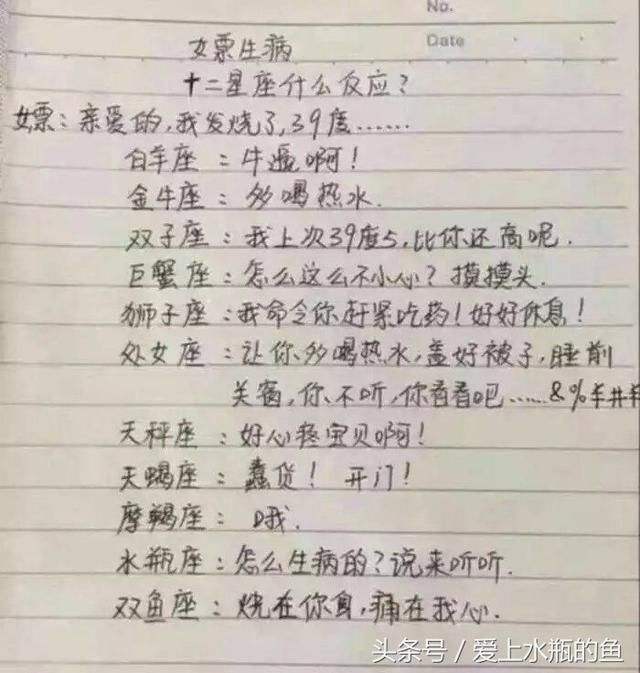 No.
Date
女票生病
十二星座什么反应？
女票：亲爱的，我发烧了，39度……
白羊座：牛逼啊！
金牛座：多喝热水．
双子座：我上次39度5，比你还高呢．
巨蟹座：怎么这么不小心？摸摸头．
狮子座：我命令你赶紧吃药！好好休息！
处女座：让你多喝热水，盖好被子，睡前
关窗，你不听，你看看吧……&%羊井羊
天秤座：好心疼宝贝啊！
天蝎座：蠢货！开门！
摩羯座：哦．
水瓶座：怎么生病的？说来听听．
双鱼座：烧在你身，痛在我心．
头条号／爱上水瓶的鱼